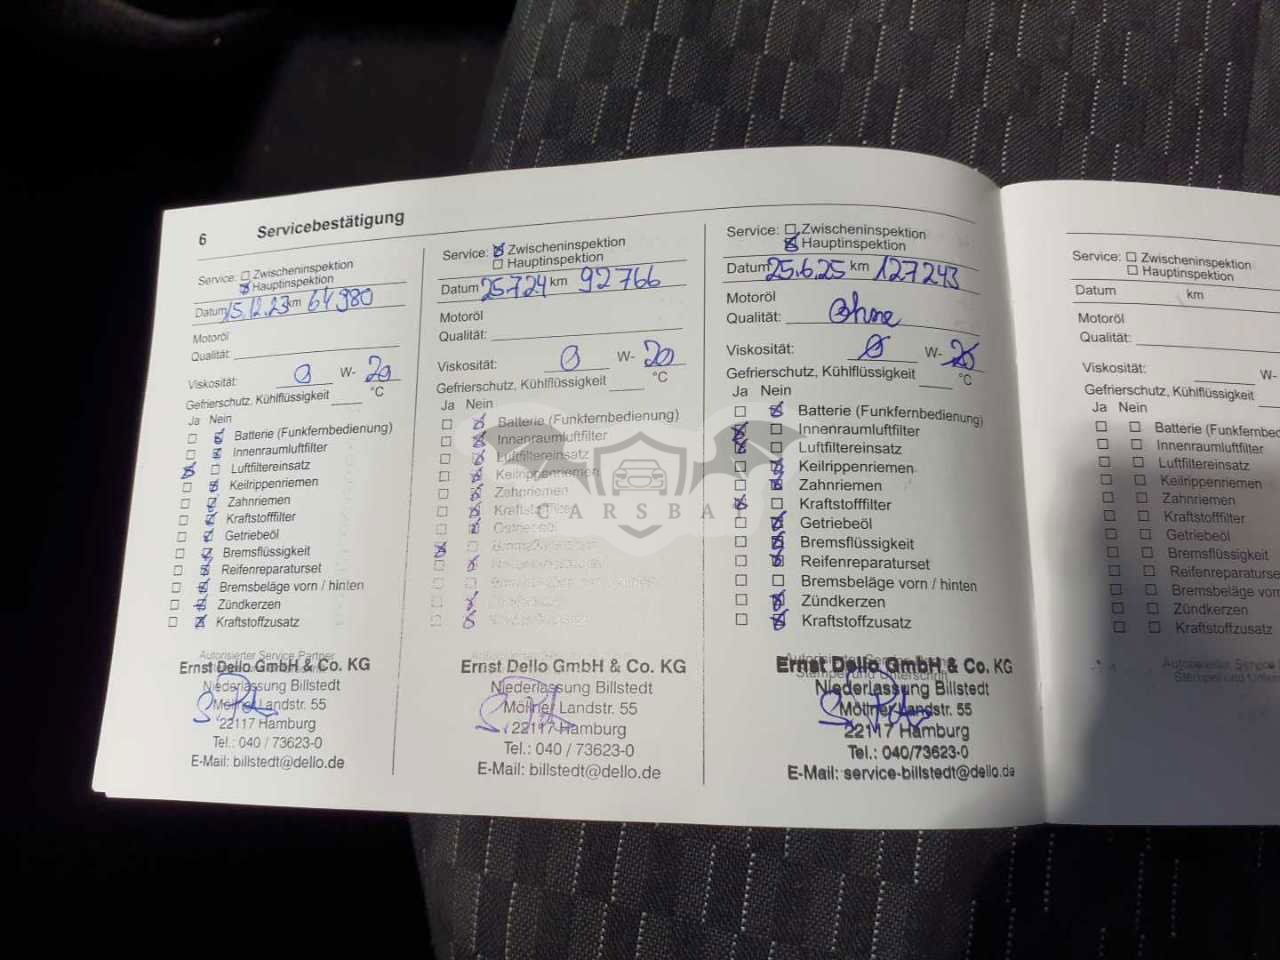 6 Servicebestätigung
Service: Zwischeninspektion
Hauptinspektion
Datum 15.12.23 km 64980
Motoröl
Qualität:
Viskosität: 0 W- 20
Gefrierschutz, Kühlflüssigkeit °C
Ja Nein
Batterie (Funkfernbedienung)
Innenraumluftfilter
Luftfiltereinsatz
Keilrippenriemen
Zahnriemen
Kraftstofffilter
Getriebeöl
Bremsflüssigkeit
Reifenreparaturset
Bremsbeläge vorn / hinten
Zündkerzen
Kraftstoffzusatz
Autorisierter Service Partner
Ernst Dello GmbH & Co. KG
Niederlassung Billstedt
Möllner Landstr. 55
22117 Hamburg
Tel.: 040 / 73623-0
E-Mail: billstedt@dello.de
Service: Zwischeninspektion
Hauptinspektion
Datum 25.7.24 km 92766
Motoröl
Qualität:
Viskosität: 0 W- 20
Gefrierschutz, Kühlflüssigkeit °C
Ja Nein
Batterie (Funkfernbedienung)
Innenraumluftfilter
Luftfiltereinsatz
Keilrippenriemen
Zahnriemen
Getriebeöl
Ernst Dello GmbH & Co. KG
Niederlassung Billstedt
Möllner Landstr. 55
22117 Hamburg
Tel.: 040 / 73623-0
E-Mail: billstedt@dello.de
Service: Zwischeninspektion
Hauptinspektion
Datum 25.6.25 km 127243
Motoröl
Qualität: Ohne
Viskosität: 0 W- 20
Gefrierschutz, Kühlflüssigkeit °C
Ja Nein
Batterie (Funkfernbedienung)
Innenraumluftfilter
Luftfiltereinsatz
Keilrippenriemen
Zahnriemen
Kraftstofffilter
Getriebeöl
Bremsflüssigkeit
Reifenreparaturset
Bremsbeläge vorn / hinten
Zündkerzen
Kraftstoffzusatz
Ernst Dello GmbH & Co. KG
Niederlassung Billstedt
Möllner Landstr. 55
22117 Hamburg
Tel.: 040/73623-0
E-Mail: service-billstedt@dello.de
Service: Zwischeninspektion
Hauptinspektion
Datum km
Motoröl
Qualität:
Viskosität: W-
Gefrierschutz, Kühlflüssigkeit
Ja Nein
Batterie (Funkfernbed
Innenraumluftfilter
Luftfiltereinsatz
Keilrippenriemen
Zahnriemen
Kraftstofffilter
Getriebeöl
Bremsflüssigkeit
Reifenreparaturse
Bremsbeläge vorn
Zündkerzen
Kraftstoffzusatz
Autorisierter Service
Stempel und Unter
CARSBAT